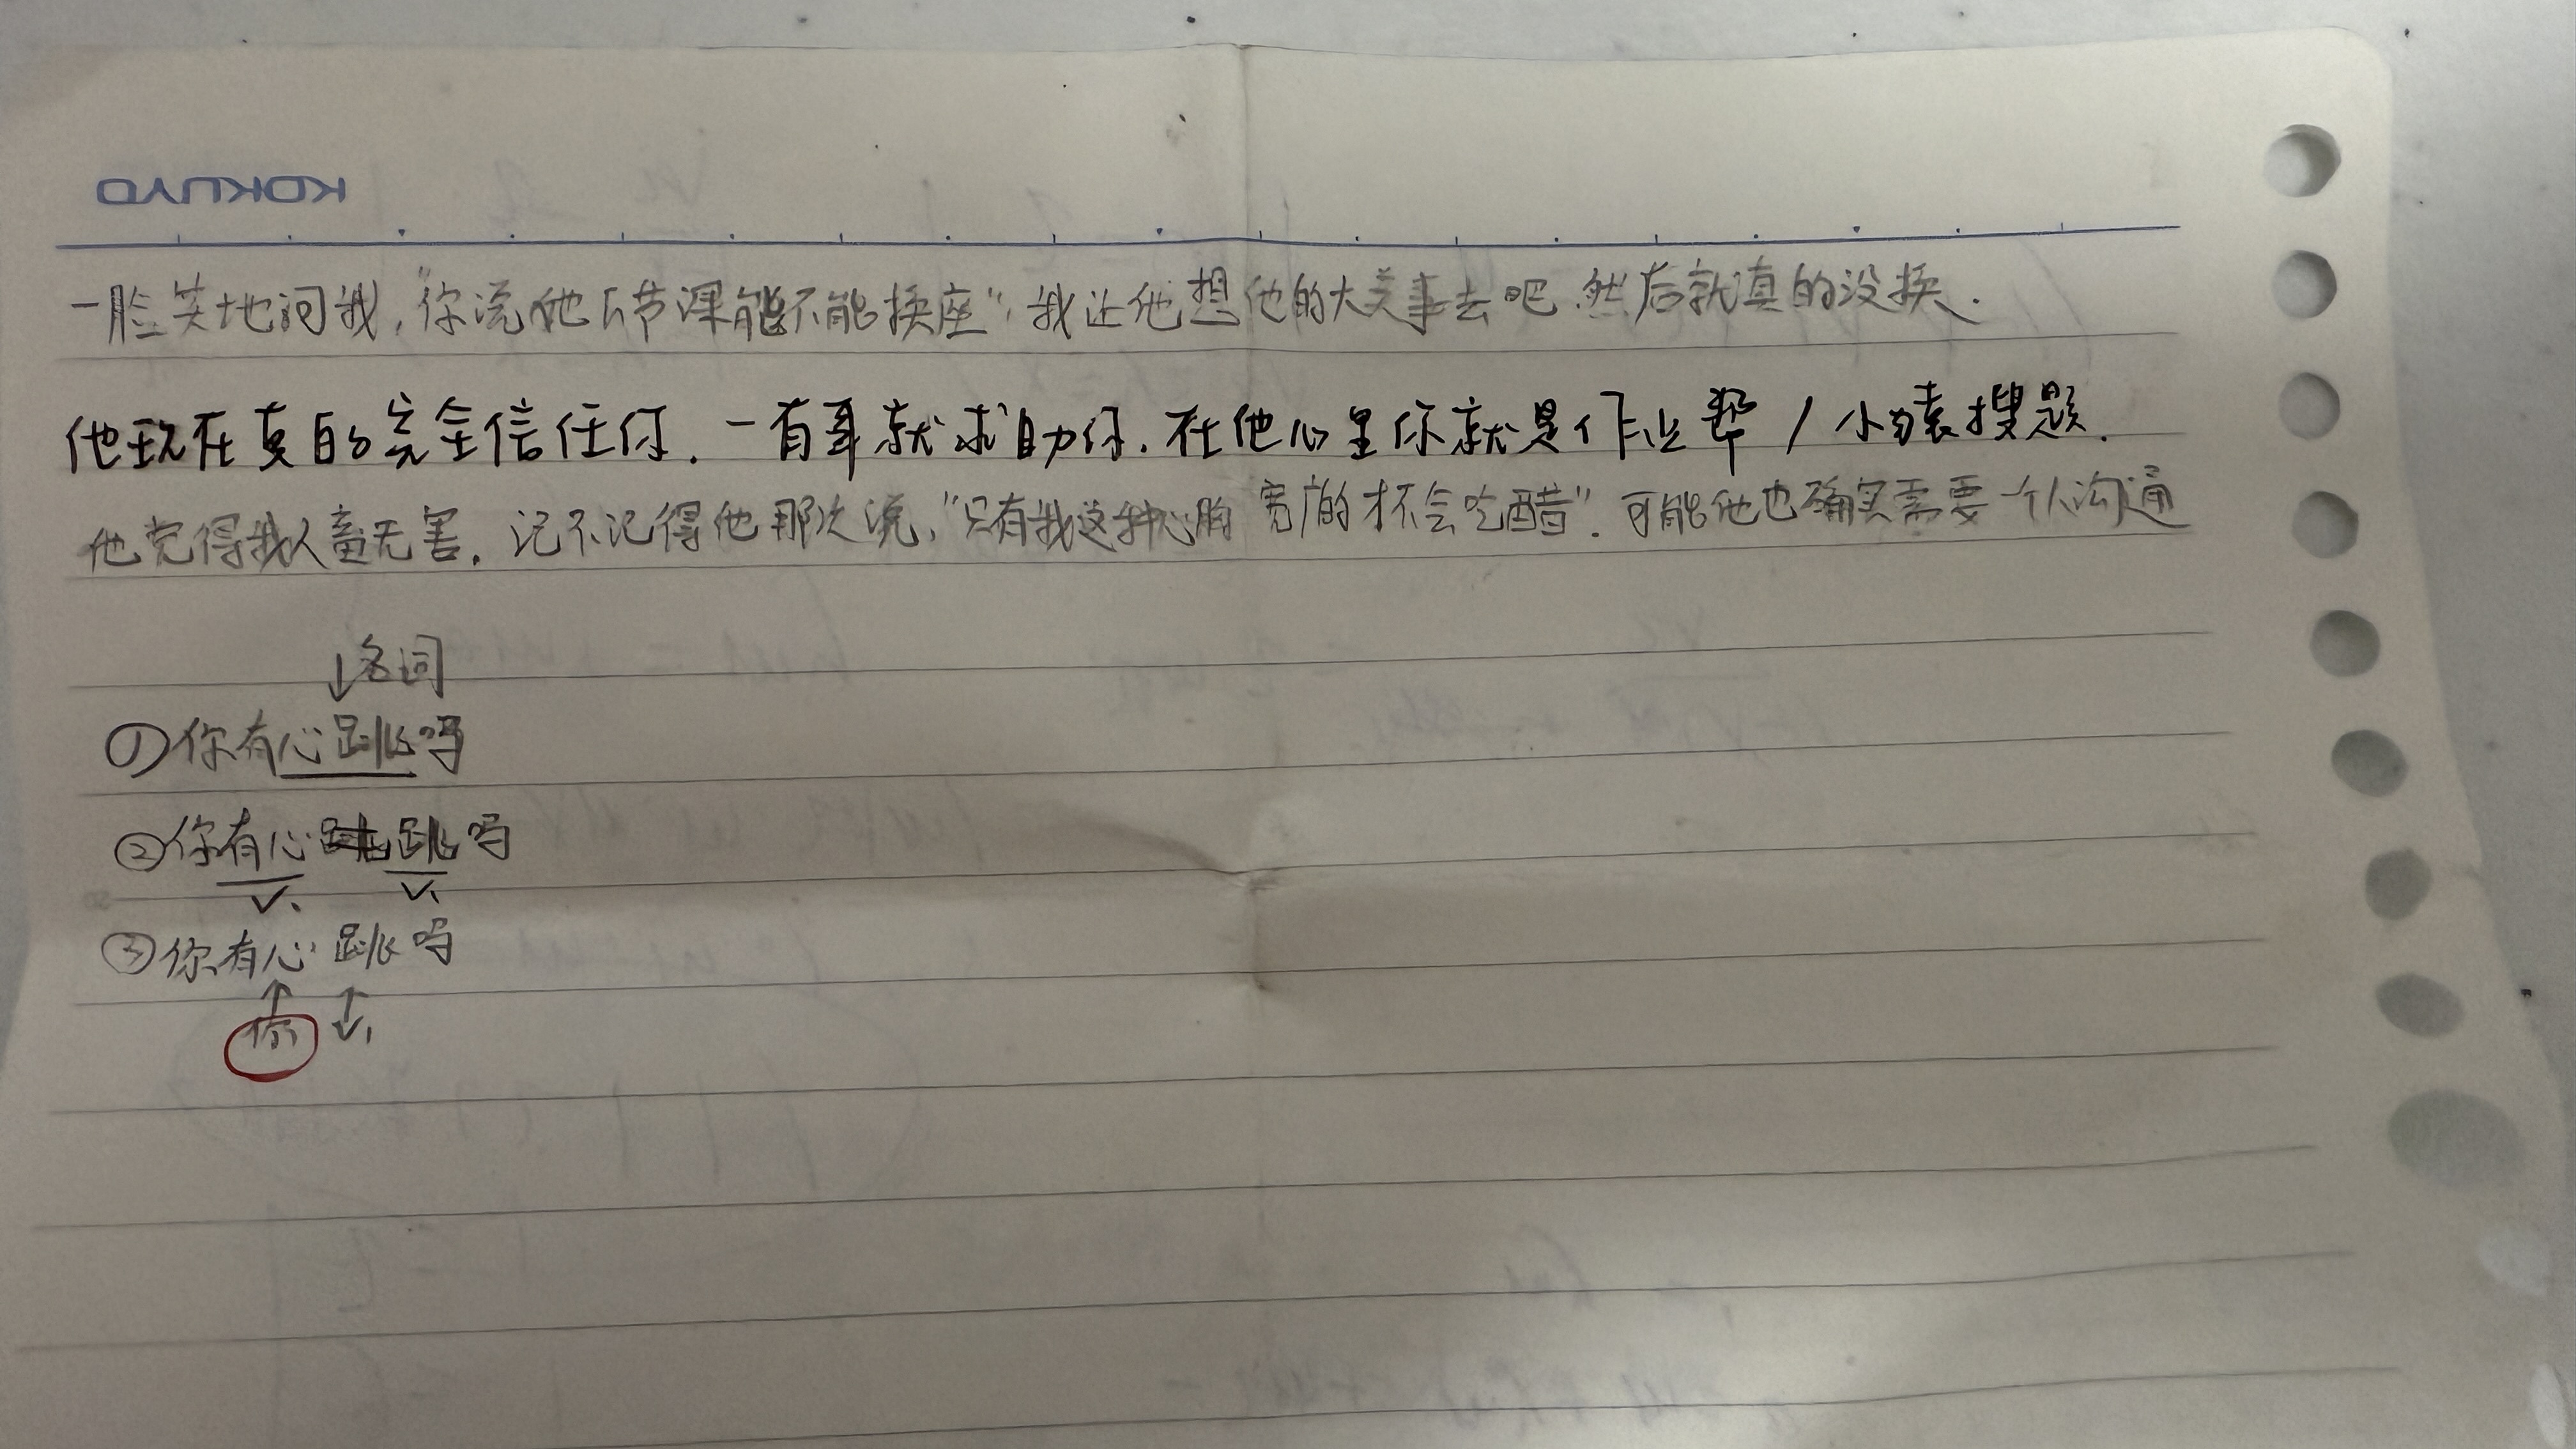 KOKUYO
一脸笑地问我，“你说他下节课能不能换座”，我让他想他的大美事去吧 然后就真的没换．
他现在真的完全信任你．一有事就求助你．在他心里你就是作业帮／小猿搜题．
他觉得我人畜无害．记不记得他那次说，“只有我这种心胸宽广的才不会吃醋”．可能他也确实需要一个人沟通
↓名词
①你有心跳吗
②你有心跳吗
v. v.
③你有心跳吗
你 v.